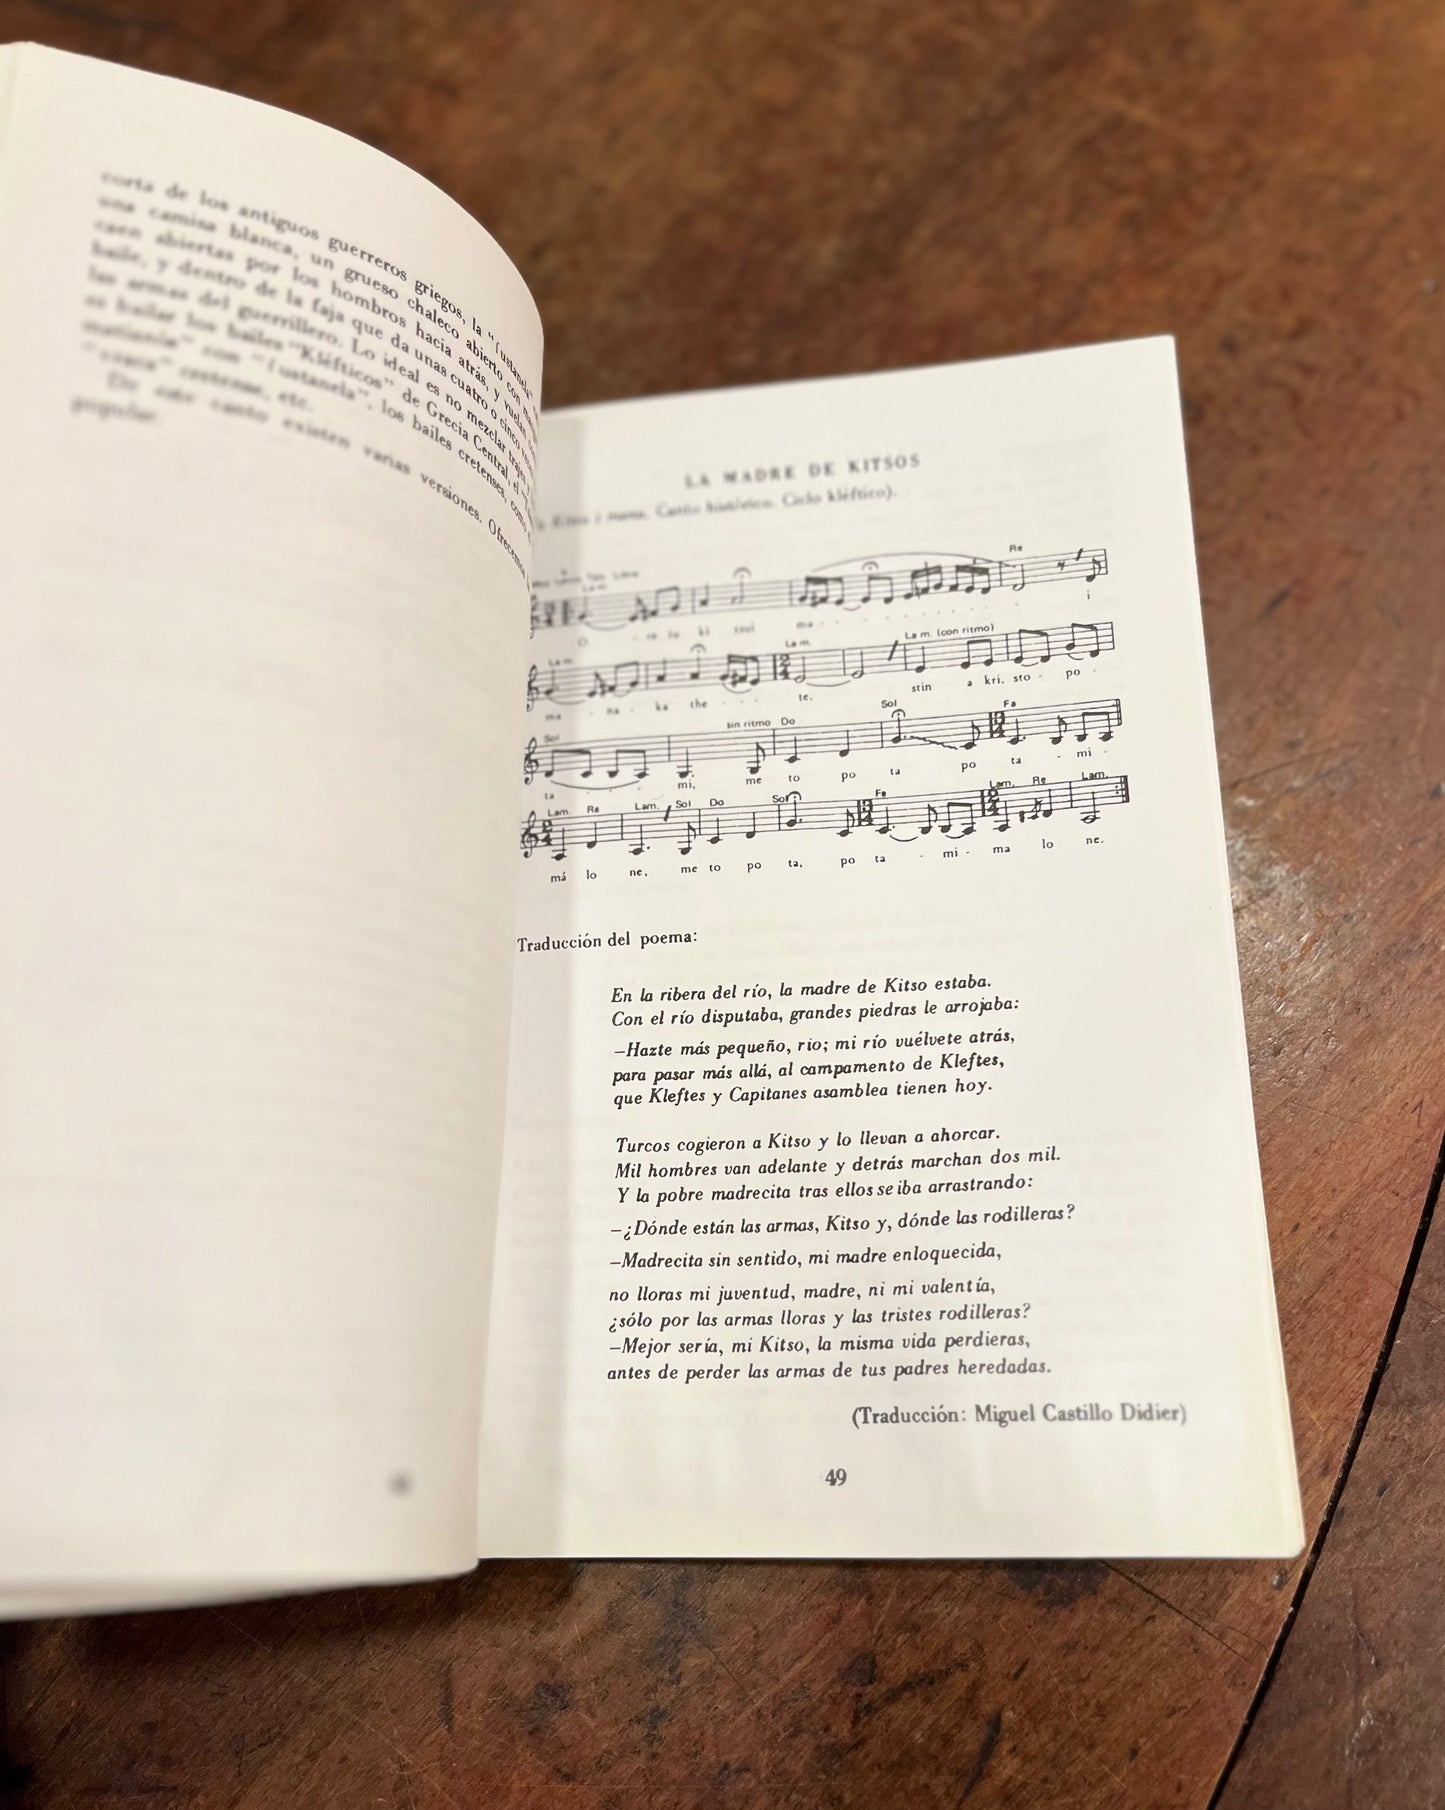 corta de los antiguos guerreros griegos, la "fustanela"
una camisa blanca, un grueso chaleco abierto con
caen abiertas por los hombros hacia atrás, y vuelan
baile, y dentro de la faja que da unas cuatro o cinco
las armas del guerrillero. Lo ideal es no mezclar trajes
bailar los bailes "Kléfticos" de Grecia Central, el
con "fustanela", los bailes cretenses, como
cretense, etc.
De este canto existen varias versiones. Ofrecemos
popular.
LA MADRE DE KITSOS
Kitsu i mana. Canto histórico. Ciclo kléftico).
Re
La m.
O re tu ki tsui ma i
La m. La m. La m. (con ritmo)
ma - na - ka the te. stin a kri. sto - po -
Sol sin ritmo Do Sol Fa
ta mi, me to po ta po ta - mi -
La m. Re La m. Sol Do Sol Fa La m. Re La m.
má lo ne, me to po ta, po ta - mi - ma lo ne.
Traducción del poema:
En la ribera del río, la madre de Kitso estaba.
Con el río disputaba, grandes piedras le arrojaba:
—Hazte más pequeño, rio; mi río vuélvete atrás,
para pasar más allá, al campamento de Kleftes,
que Kleftes y Capitanes asamblea tienen hoy.
Turcos cogieron a Kitso y lo llevan a ahorcar.
Mil hombres van adelante y detrás marchan dos mil.
Y la pobre madrecita tras ellos se iba arrastrando:
—¿Dónde están las armas, Kitso y, dónde las rodilleras?
—Madrecita sin sentido, mi madre enloquecida,
no lloras mi juventud, madre, ni mi valentía,
¿sólo por las armas lloras y las tristes rodilleras?
—Mejor sería, mi Kitso, la misma vida perdieras,
antes de perder las armas de tus padres heredadas.
(Traducción: Miguel Castillo Didier)
49